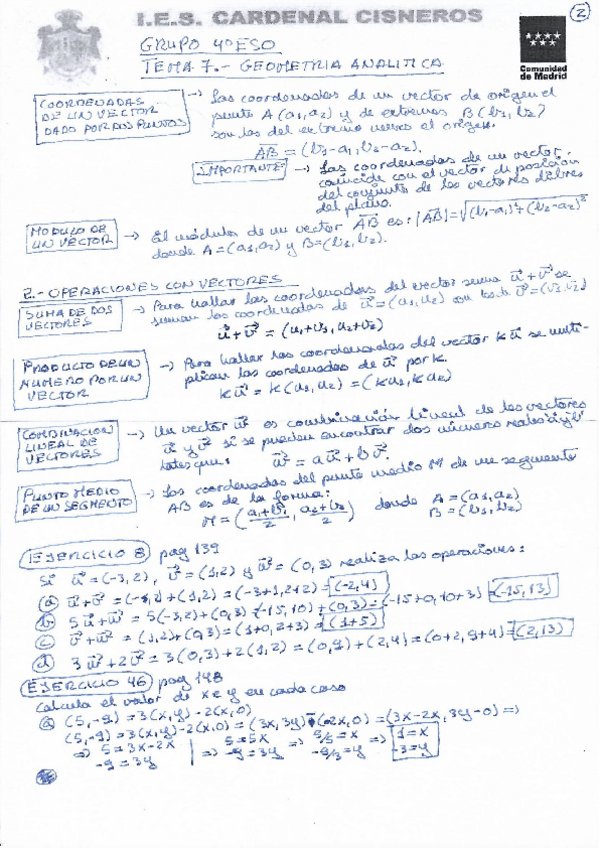 I.E.S. CARDENAL CISNEROS
2
Comunidad de Madrid
GRUPO 4º ESO
TEMA 7.- GEOMETRIA ANALITICA
COORDENADAS DE UN VECTOR DADO POR DOS PUNTOS → Las coordenadas de un vector de origen el
punto A(a₁,a₂) y de extremo B(b₁,b₂)
son las del extremo menos el origen.
AB = (b₁-a₁, b₂-a₂).
IMPORTANTE → Las coordenadas de un vector
coincide con el vector de posición
del conjunto de los vectores libres
del plano.
MODULO DE UN VECTOR → El módulo de un vector AB es: |AB| = √(b₁-a₁)²+(b₂-a₂)²
donde A=(a₁,a₂) y B=(b₁,b₂).
2.- OPERACIONES CON VECTORES
SUMA DE DOS VECTORES → Para hallar las coordenadas del vector suma u+v se
suman las coordenadas de u=(u₁,u₂) con las de v=(v₁,v₂)
u+v = (u₁+v₁, u₂+v₂)
PRODUCTO DE UN NUMERO POR UN VECTOR → Para hallar las coordenadas del vector k u se multi-
plican las coordenadas de u por k.
k u = k(u₁,u₂) = (k u₁, k u₂)
COMBINACION LINEAL DE VECTORES → Un vector w es combinación lineal de los vectores
u y v si se pueden encontrar dos números reales a y b
tales que: w = a u + b v.
PUNTO MEDIO DE UN SEGMENTO → Las coordenadas del punto medio M de un segmento
AB es de la forma:
M = (a₁+b₁/2, a₂+b₂/2) donde A=(a₁,a₂)
B=(b₁,b₂)
EJERCICIO 8 pag 139
Si u=(-3,2), v=(1,2) y w=(0,3) realiza las operaciones:
a) u+v = (-3,2)+(1,2) = (-3+1,2+2) = (-2,4)
b) 5u+w = 5(-3,2)+(0,3) = (-15,10)+(0,3) = (-15+0,10+3) = (-15,13)
c) v+w = (1,2)+(0,3) = (1+0,2+3) = (1+5)
d) 3w+2v = 3(0,3)+2(1,2) = (0,9)+(2,4) = (0+2,9+4) = (2,13)
EJERCICIO 46 pag 148
Calcula el valor de x e y en cada caso
a) (5,-9) = 3(x,y)-2(x,0)
(5,-9) = 3(x,y)-2(x,0) = (3x,3y)-(2x,0) = (3x-2x,3y-0) =>
=> 5=3x-2x | => 5=5x => 5/5=x => 1=x
-9=3y | => -9=3y -9/3=y => -3=y